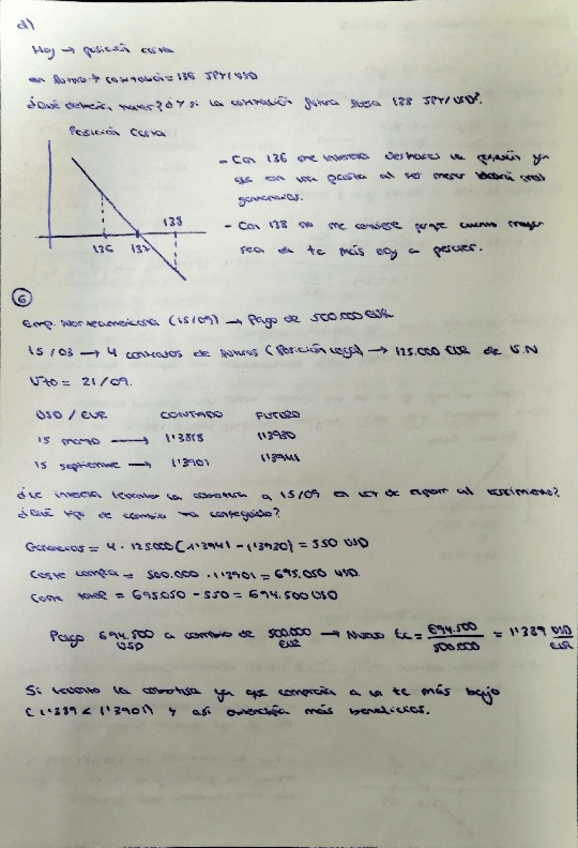 d)
Hoy → posición corta
en futuro → cotización = 136 JPY/USD
¿Qué debería hacer? ¿Y si la cotización futura fuera 138 JPY/USD?
Posición Corta
- Con 136 me interesa deshacer la posición ya
que en una posición al ser menor habrá
ganancias.
- Con 138 no me conviene porque cuanto mayor
sea el tc más voy a perder.
138
136 137
6
Emp. Norteamericana (15/09) → Pago de 500.000 EUR
15/03 → 4 contratos de futuros (Posición larga) → 125.000 EUR de V.N
Vto = 21/09.
USD / EUR CONTADO FUTURO
15 marzo → 1'3868 1'3930
15 septiembre → 1'3901 1'3941
¿Le interesa levantar la cobertura a 15/09 en vez de esperar al vencimiento?
¿Qué tipo de cambio ha conseguido?
Ganancias = 4 · 125.000 (1'3941 - 1'3930) = 550 USD
Coste compra = 500.000 · 1'3901 = 695.050 USD
Coste total = 695.050 - 550 = 694.500 USD
Pago 694.500 USD a cambio de 500.000 EUR → Nuevo tc = 694.500 / 500.000 = 1'389 USD/EUR
Si levanto la cobertura ya que compraría a un tc más bajo
(1'389 < 1'3901) y así obtendría más beneficios.